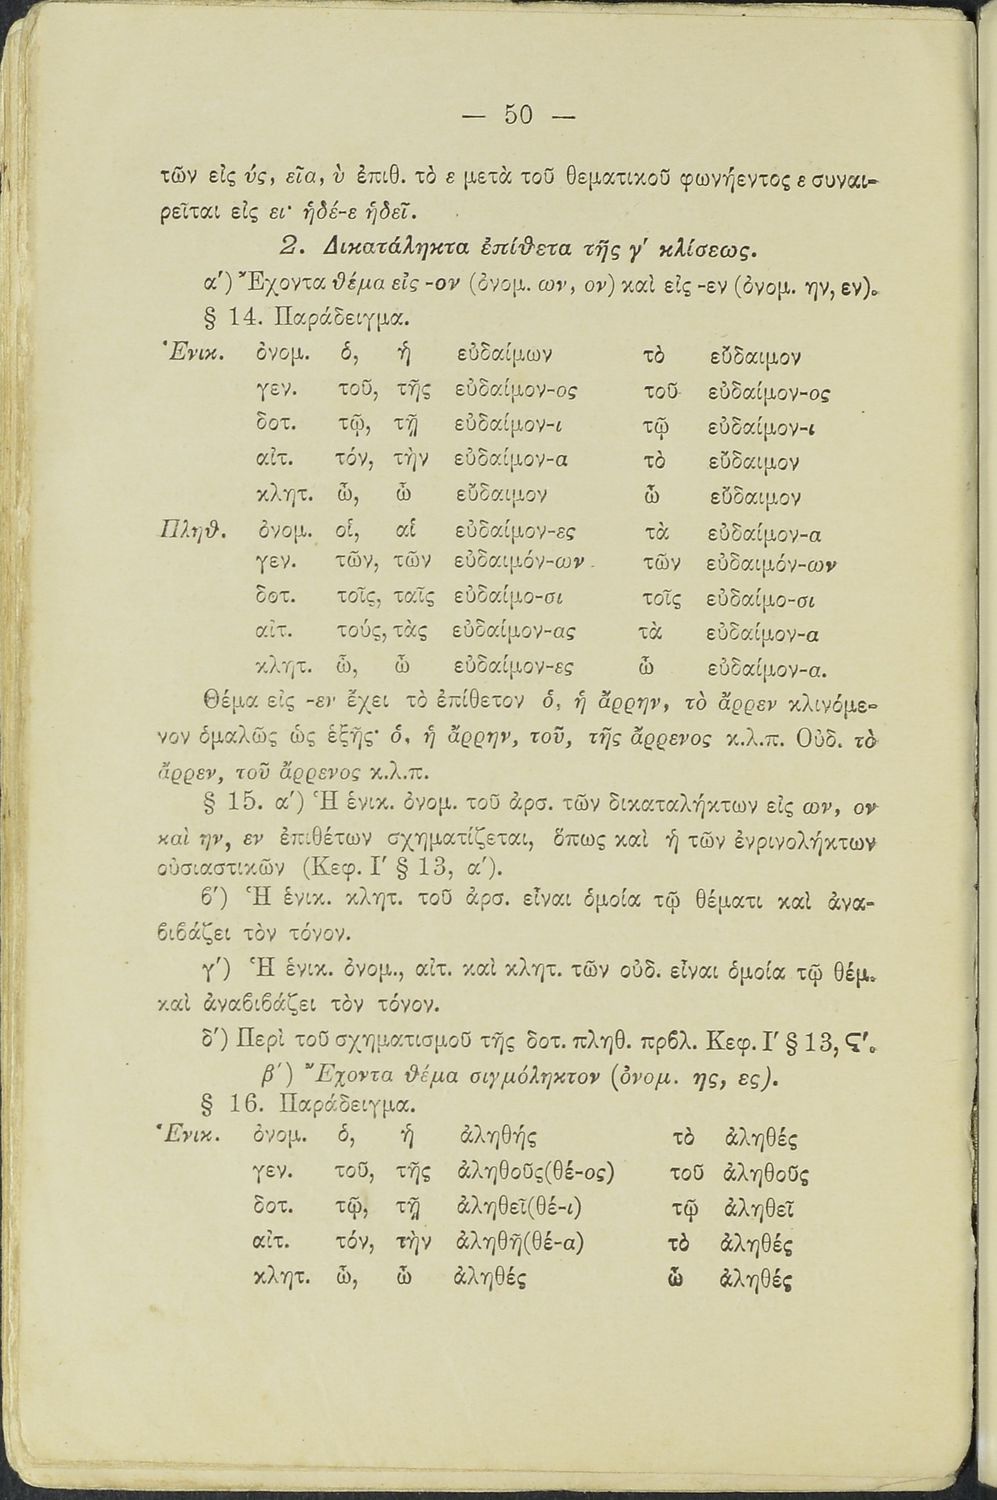 — 50 —
τῶν εἰς ύς, εῖα, ὺ ἐπιθ. τὸ ε μετὰ τοῦ θεματικοῦ φωνήεντος ε συναι-
ρεῖται εἰς ει· ἡδέ-ε ἡδεῖ.
2. Δικατάληκτα ἐπίθετα τῆς γ′ κλίσεως.
α′) Ἔχοντα θέμα εἰς -ον (ὀνομ. ων, ον) καὶ εἰς -εν (ὀνομ. ην, εν).
§ 14. Παράδειγμα.
Ἑνικ. ὀνομ. ὁ, ἡ εὐδαίμων τὸ εὔδαιμον
γεν. τοῦ, τῆς εὐδαίμον-ος τοῦ εὐδαίμον-ος
δοτ. τῷ, τῇ εὐδαίμον-ι τῷ εὐδαίμον-ι
αἰτ. τόν, τὴν εὐδαίμον-α τὸ εὔδαιμον
κλητ. ὦ, ὦ εὔδαιμον ὦ εὔδαιμον
Πληθ. ὀνομ. οἱ, αἱ εὐδαίμον-ες τὰ εὐδαίμον-α
γεν. τῶν, τῶν εὐδαιμόν-ων τῶν εὐδαιμόν-ων
δοτ. τοῖς, ταῖς εὐδαίμο-σι τοῖς εὐδαίμο-σι
αἰτ. τούς, τὰς εὐδαίμον-ας τὰ εὐδαίμον-α
κλητ. ὦ, ὦ εὐδαίμον-ες ὦ εὐδαίμον-α.
Θέμα εἰς -εν ἔχει τὸ ἐπίθετον ὁ, ἡ ἄρρην, τὸ ἄρρεν κλινόμε-
νον ὁμαλῶς ὡς ἑξῆς· ὁ, ἡ ἄρρην, τοῦ, τῆς ἄρρενος κ.λ.π. Οὐδ. τὸ
ἄρρεν, τοῦ ἄρρενος κ.λ.π.
§ 15. α′) Ἡ ἑνικ. ὀνομ. τοῦ ἀρσ. τῶν δικαταλήκτων εἰς ων, ον
καὶ ην, εν ἐπιθέτων σχηματίζεται, ὅπως καὶ ἡ τῶν ἐνρινολήκτων
οὐσιαστικῶν (Κεφ. Ι′ § 13, α′).
β′) Ἡ ἑνικ. κλητ. τοῦ ἀρσ. εἶναι ὁμοία τῷ θέματι καὶ ἀνα-
βιβάζει τὸν τόνον.
γ′) Ἡ ἑνικ. ὀνομ., αἰτ. καὶ κλητ. τῶν οὐδ. εἶναι ὁμοία τῷ θέμ.
καὶ ἀναβιβάζει τὸν τόνον.
δ′) Περὶ τοῦ σχηματισμοῦ τῆς δοτ. πληθ. πρβλ. Κεφ. Ι′ § 13, Ϛ′.
β′) Ἔχοντα θέμα σιγμόληκτον (ὀνομ. ης, ες).
§ 16. Παράδειγμα.
Ἑνικ. ὀνομ. ὁ, ἡ ἀληθής τὸ ἀληθές
γεν. τοῦ, τῆς ἀληθοῦς(θέ-ος) τοῦ ἀληθοῦς
δοτ. τῷ, τῇ ἀληθεῖ(θέ-ι) τῷ ἀληθεῖ
αἰτ. τόν, τὴν ἀληθῆ(θέ-α) τὸ ἀληθές
κλητ. ὦ, ὦ ἀληθές ὦ ἀληθές